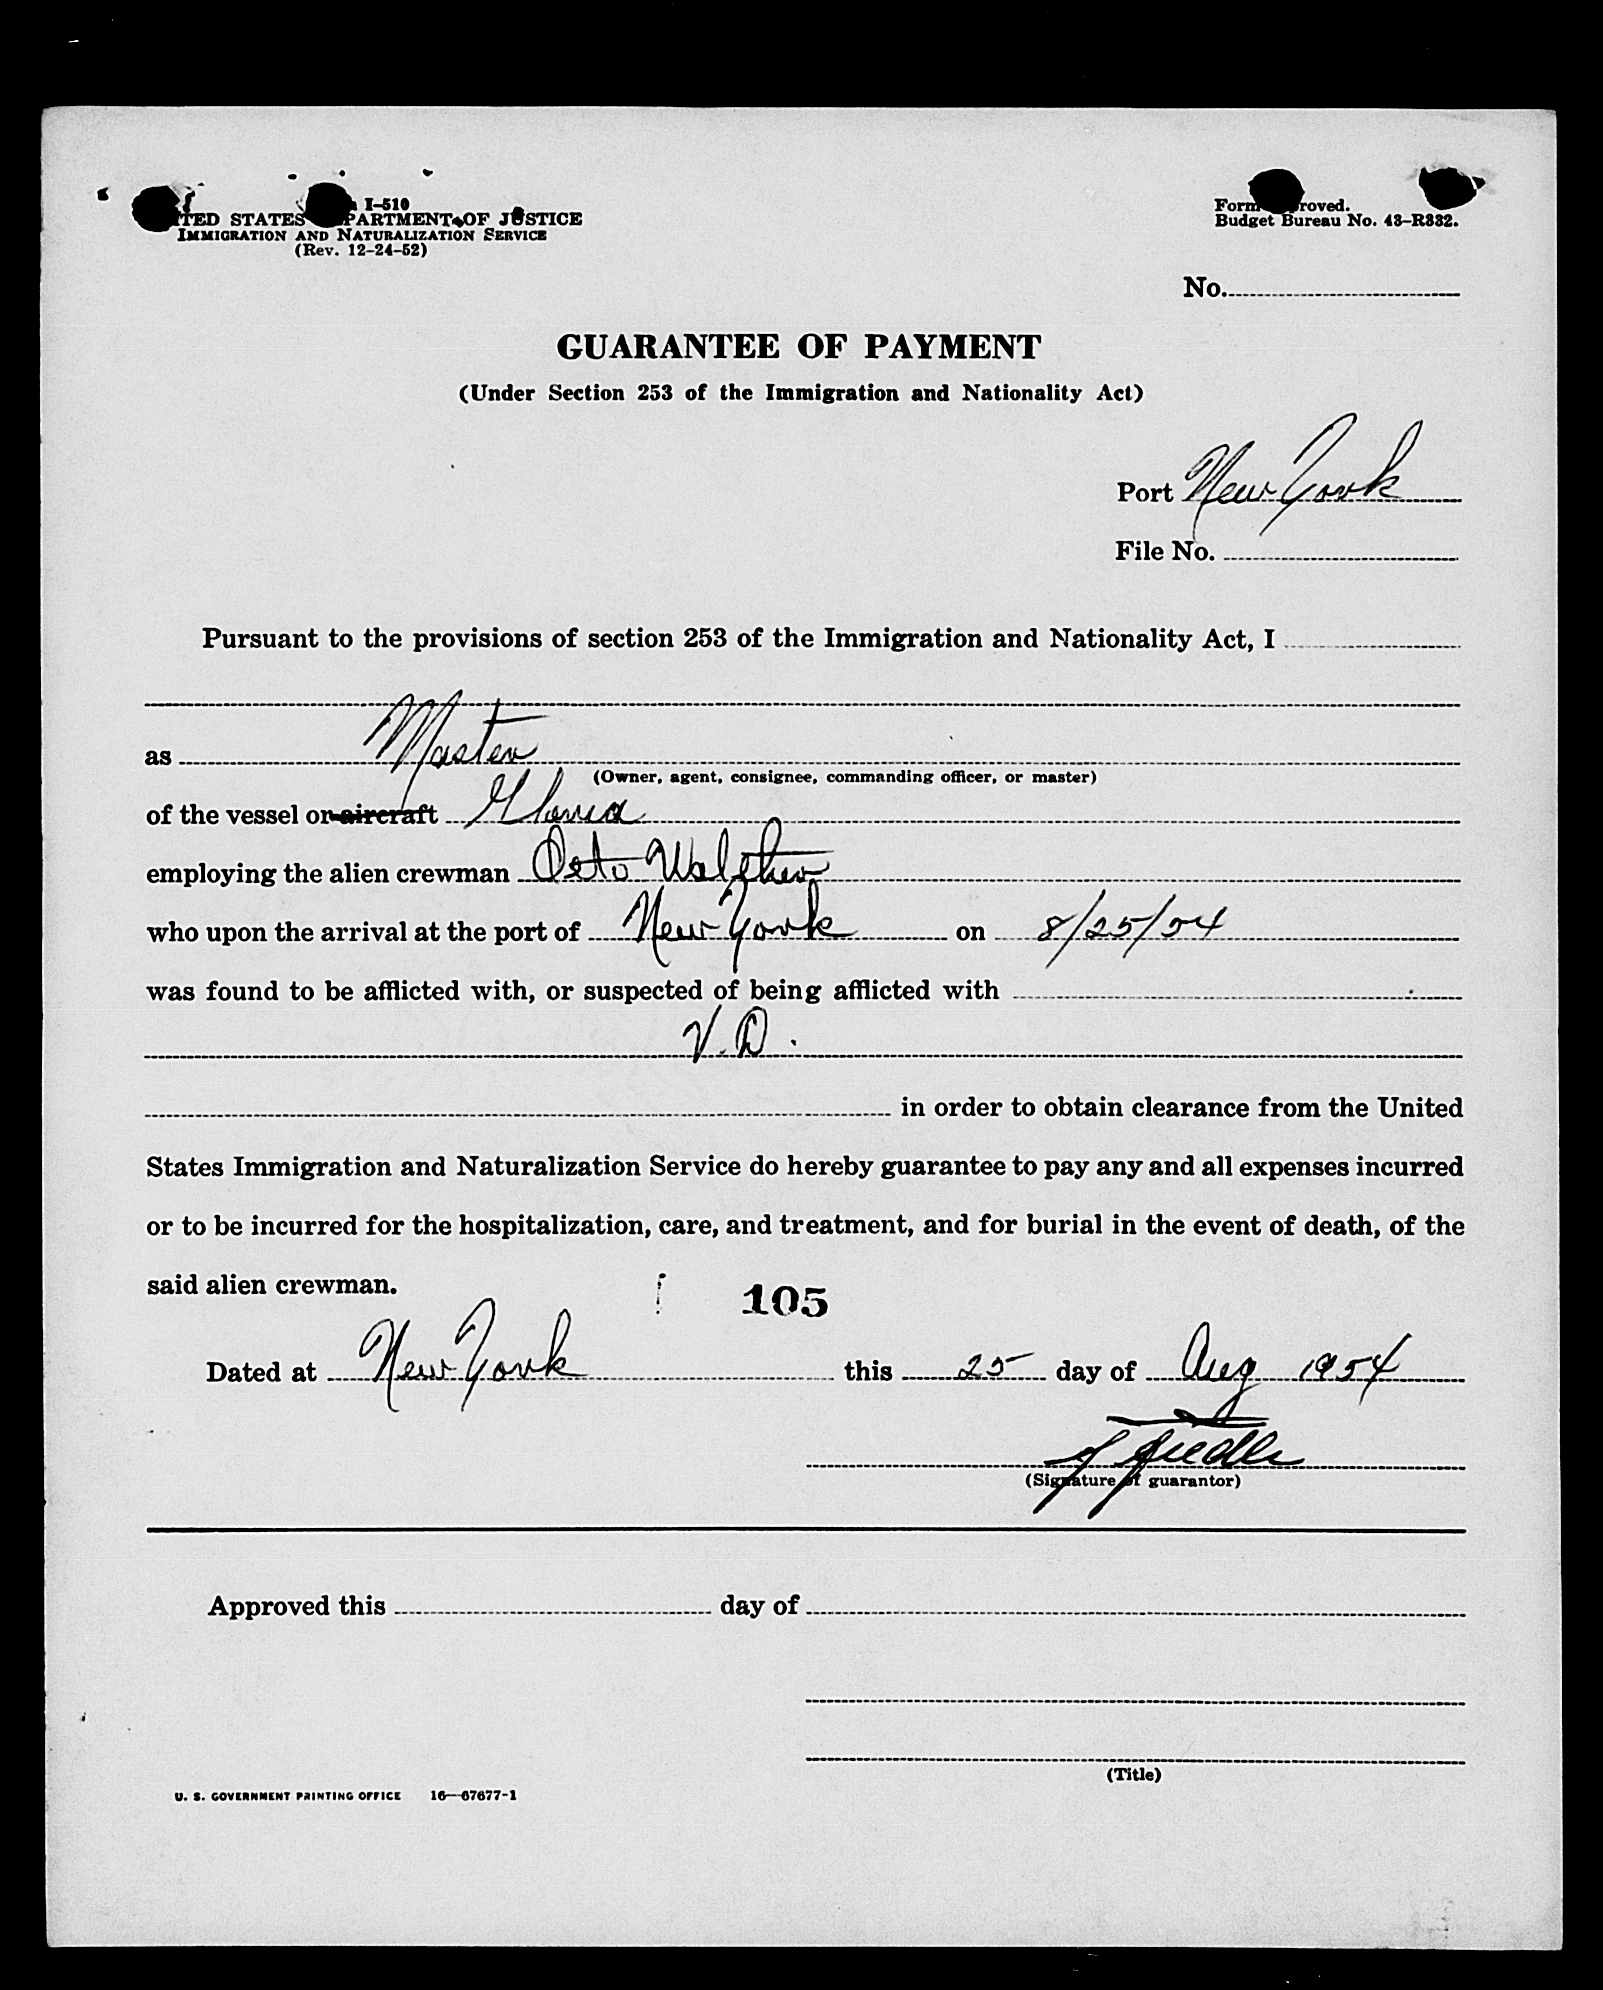 I-510
TED STATES PARTMENT OF JUSTICE
IMMIGRATION AND NATURALIZATION SERVICE
(Rev. 12-24-52)
Form roved.
Budget Bureau No. 43-R332.
No.
GUARANTEE OF PAYMENT
(Under Section 253 of the Immigration and Nationality Act)
Port New York
File No.
Pursuant to the provisions of section 253 of the Immigration and Nationality Act, I
as Master
(Owner, agent, consignee, commanding officer, or master)
of the vessel or aircraft Gloria
employing the alien crewman Otto Walther
who upon the arrival at the port of New York on 8/25/54
was found to be afflicted with, or suspected of being afflicted with
V.D.
in order to obtain clearance from the United
States Immigration and Naturalization Service do hereby guarantee to pay any and all expenses incurred
or to be incurred for the hospitalization, care, and treatment, and for burial in the event of death, of the
said alien crewman.
105
Dated at New York this 25 day of Aug 1954
(Signature of guarantor)
Approved this day of
(Title)
U. S. GOVERNMENT PRINTING OFFICE 16—67677-1